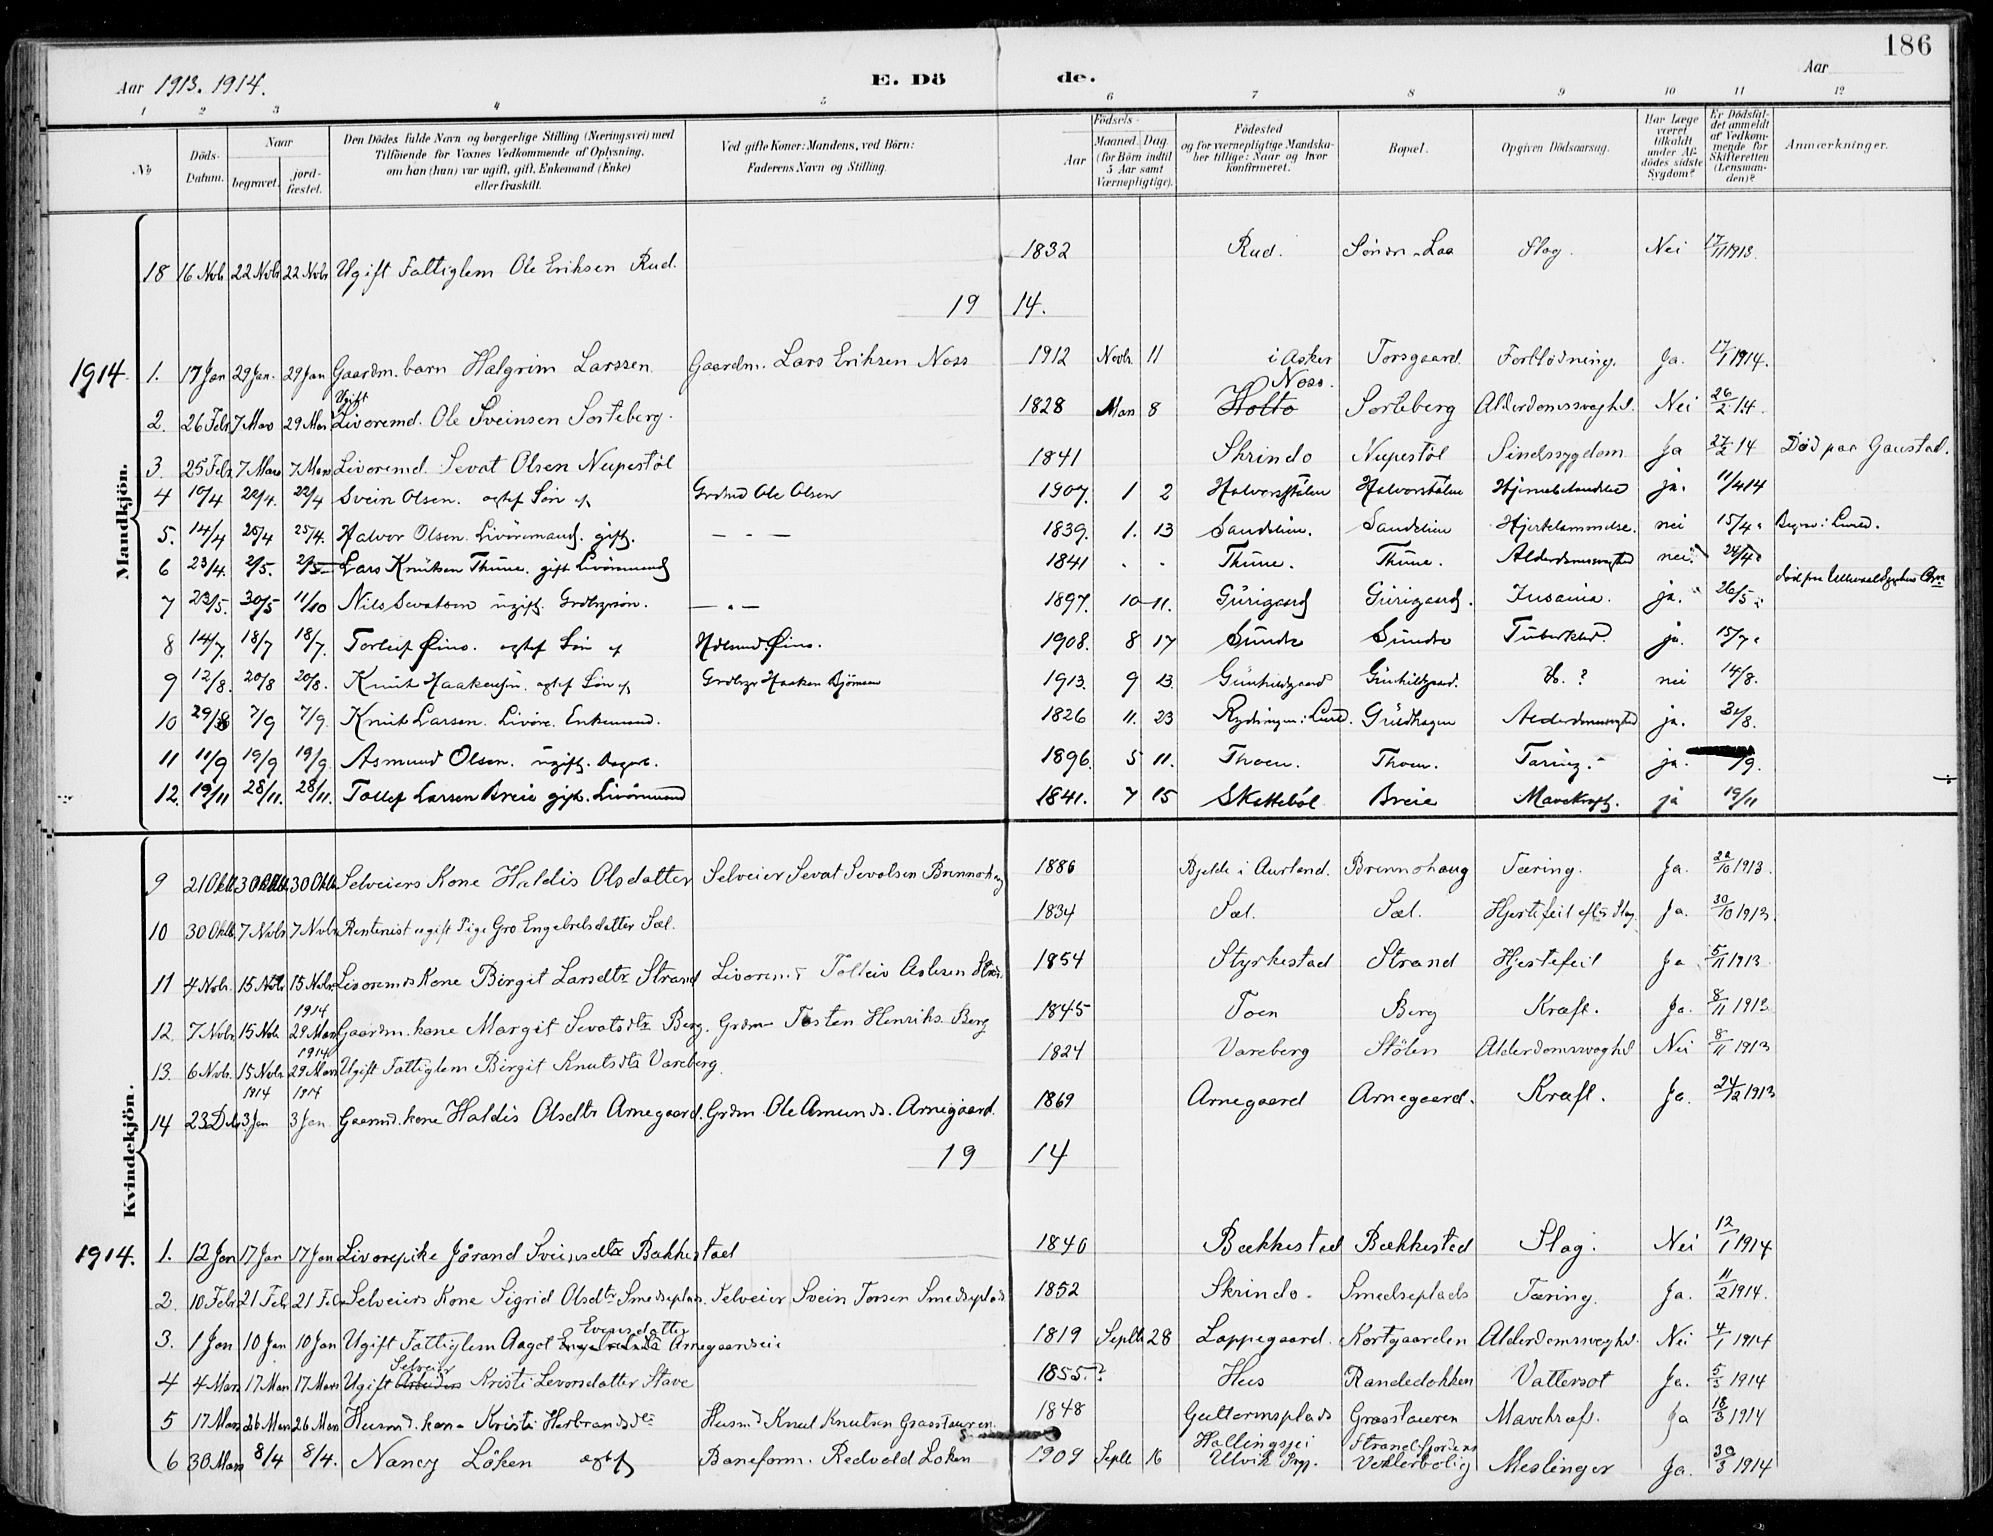 186
Aar 1913. 1914.
E. Dö de.
Aar
1 2 3 4 5 6 7 8 9 10 11 12
No
Döds-Datum.
Naar
begravet.
jord-fæstet.
Den Dödes fulde Navn og borgerlige Stilling (Næringsvei) med
Tilföiende for Voxnes Vedkommende af Oplysning,
om han (hun) var ugift, gift, Enkemand (Enke)
eller fraskilt.
Ved gifte Koner: Mandens, ved Börn:
Faderens Navn og Stilling.
Födsels-
Aar
Maaned. Dag
(for Börn indtil
5 Aar samt
Værnepligtige).
Födested
og for værnepligtige Mandska-
ber tillige: Naar og hvor
konfirmeret.
Bopæl.
Opgiven Dödsaarsag.
Har Læge
været
tilkaldt
under Af-
dödes sidste
Sygdom?
Er Dødsfal-
det anmeldt
af Vedkom-
mende for
Skifteretten
(Lensman-
den)?
Anmærkninger.
Mandkjön.
18 16 Nvbr 22 Nvbr 22 Nvbr Ugift Fattiglem Ole Eriksen Rud. 1832 Rud. Söndr-Laa Slag. Nei 17/11 1913.
19 14.
1914. 1. 17 Jan 29 Jan. 29 Jan Gaardm. barn Halgrim Larssen. Gaardm. Lars Eriksen Noss 1912 Novbr. 11 i Asker Torsgaard. Forblødning. Ja. 17/1 1914.
2. 26 Febr 7 Mars 29 Mars Ugift Livöremd. Ole Sveinsen Sorteberg. 1828 Mars 8 Noss. Holto Sorteberg Alderdomssvaghd. Nei 26/2 14.
3. 25 Febr. 7 Mars 7 Mars Livöremd. Sevat Olsen Nupestöl 1841 Skrindo Nupestöl Sindssygdom Ja 27/2 14 Død paa Gaustad.
4 10/4 22/4. 22/4 Svein Olsen. ægtef Sön af Grdbrd Ole Olsen 1907. 1 2 Halvorstölen Halvorstölen Hjernebetændelse ja. 11/4 14
5. 14/4 25/4 25/4. Halvor Olsen. Livöremand. gift. — - — 1839. 1. 13 Sandelien. Sandelien Hjertelammelse. nei 15/4.
6 23/4. 2/5. 2/5 Lars Knutsen Thune. gift Livöremand 1841 . . Thune. Thune. Alderdomssvaghed nei. 24/4.
7 23/5. 30/5 11/10 Nils Sevatsen ugift. Grdbrgersön. — " — 1897. 10 11. Gurigard Gurigard. Insania. ja. 26/5.
8 14/7. 18/7 18/7. Torleif Øino. ægtef Sön af Øino. 1908. 8 17 Sundre Sundre Tuberkul. ja. 15/7.
9 12/8. 20/8 20/8. Knut Haakensen. ægtef Sön af Grdbrgr Haaken Bjömsen 1913. 9 13. Gunhildgaard Gunhildgaard. ? nei 14/8.
10 29/8 7/9 7/9. Knut Larsen. Livöre. Enkemand. 1826 11. 23 Guldhagen Alderdomssvaghed ja. 31/8.
11 11/9 19/9 19/9. Asmund Olsen. ugift. Dagarb. 1896. 5 11. Thoen. Thoen. Tæring. ja. /9.
12. 19/11 28/11. 28/11. Tollef Larsen Breie gift. Livöremand 1841. 7 15 Skattebøl Breie Mavekræft. ja 19/11
Kvindekjön.
9 21 Oktb. 30 Oktb. 30 Oktb Selveiers Kone Haldis Olsdatter Selveier Sevat Sevatsen Brennohaug 1886 Bjelde i Aurland. Brennohaug Tæring. Ja. 22/10 1913.
10 30 Oktb. 7 Nvbr 7 Nvbr Rentenist ugift Pige Gro Engebretsdatter Sæl. 1834 Sæl. Sæl. Hjertefeil efter Slag. Ja. 30/10 1913.
11 4 Nvbr. 15 Nvbr 15 Nvbr. Livöremds Kone Birgit Larsdtr Strand Livöremd Tolleiv Aslesen Strand 1854 Styrkestad Strand Hjertefeil Ja 5/11 1913.
12. 7 Nvbr 15 Nvbr. 1914 29 Mars Gaardm. kone Margit Sevatsdtr Berg. Grdm. Tosten Henriks. Berg 1845 Toen Berg Kræft. Ja. 8/11 1913
13. 6 Nvbr. 15 Nvbr. 1914 29 Mars Ugift Fattiglem Birgit Knutsdtr Vareberg. 1824 Vareberg Stölen Alderdomssvaghd Nei 8/11 1913
14 23 Dcbr 1914 3. Jan 1914 3 Jan. Gaarmd. kone Haldis Olsdtr Arnegaard. Grdm. Ole Amunds. Arnegaard. 1869 Arnegaard Arnegaard. Kræft. Ja. 24/12 1913
19 14
1914. 1. 12 Jan 17 Jan 17 Jan Livörepike Jörand Sveinsdtr Bækkestad 1840 Bækkestad Bækkestad Slag. Nei 12/1 1914
2. 10 Febr 21 Febr 21 Febr Selveiers Kone Sigrid Olsdtr Smedseplads. Selveier Svein Torsen Smedseplads 1852 Skrindo. Smedseplads Tæring. Ja. 11/2 1914.
3. 1 Jan 10 Jan 10 Jan Ugift Fattiglem Aagot Evensdatter Arnegaardseie 1819 Septb 28 Loppegaard. Kortgaarden Alderdomssvaghd. Nei 4/1 1914
4 4 Mars 17 Mars 17 Mars Ugift Selveier Arbeiders Kristi Levorsdatter Stave 1855.? Hus Randedokken Vattersot Ja. 5/3 1914
5 17 Mars 26 Mars 26 Mars Husmd. kone Kristi Herbrandsdtr Husmd Knut Knutsen Grasstauren. 1848 Guttormsplads Grasstauren Mavekræft. Ja 18/3 1914
6 30 Mars 8/4 8/4. Nancy Löken ægtef Baneform. Redvald Loken 1909 Septb 16 Hallingsjei Ulvik Pgj. Strandefjordens Vokterbolig Meslinger Ja. 30/3 1914